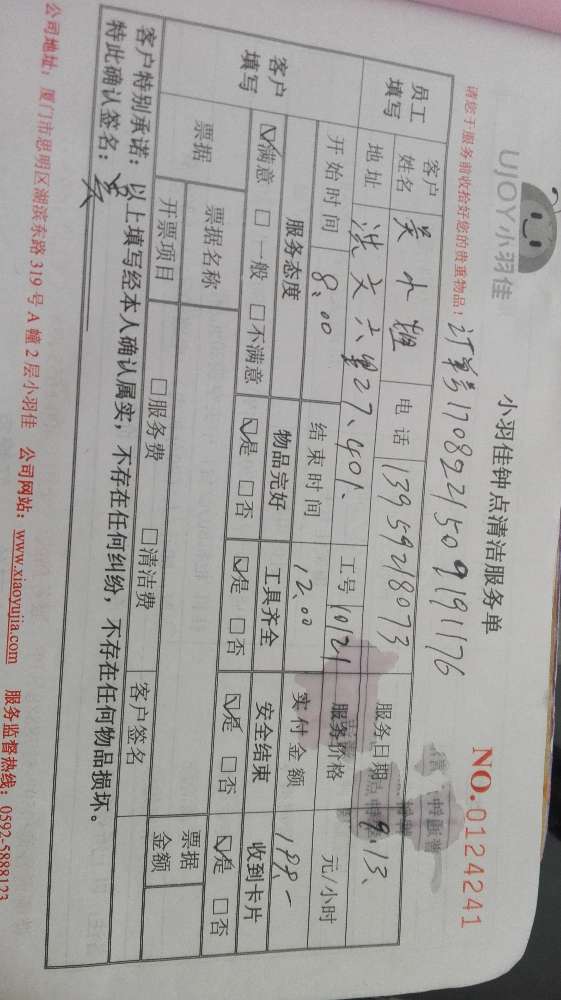 UJOY小羽佳
小羽佳钟点清洁服务单
NO.0124241
请您于服务前收拾好您的贵重物品!
订单号1708221509191176
员工填写
客户姓名 吴小姐 电话 13959218073 服务日期 9.13、
地址 洪文六里27.401、 工号 10121 服务价格 元/小时
客户填写
开始时间 8:00 结束时间 12.00 实付金额
服务态度 物品完好 工具齐全 安全结束 收到卡片
☑满意 □一般 □不满意 ☑是 □否 ☑是 □否 ☑是 □否 ☑是 □否
票据 票据名称 □服务费 □清洁费 客户签名 票据金额
开票项目
客户特别承诺:以上填写经本人确认属实,不存在任何纠纷,不存在任何物品损坏。
特此确认签名:吴
公司地址:厦门市思明区湖滨东路319号A幢2层小羽佳 公司网站:www.xiaoyujia.com 服务监督热线:0592-5888123